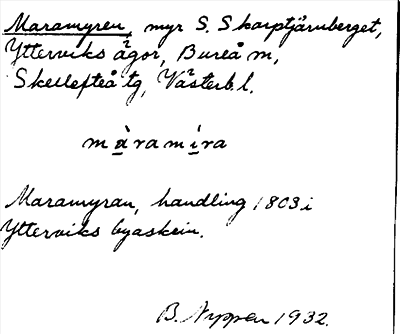 Maramyren, myr S. Skarptjärnberget,
Ytterviks ägor, Bureå sn,
Skellefteå tg, Västerb.l.
màramìra
Maramyran, handling 1803 i
Ytterviks byaskrin.
B. Nyppen 1932.